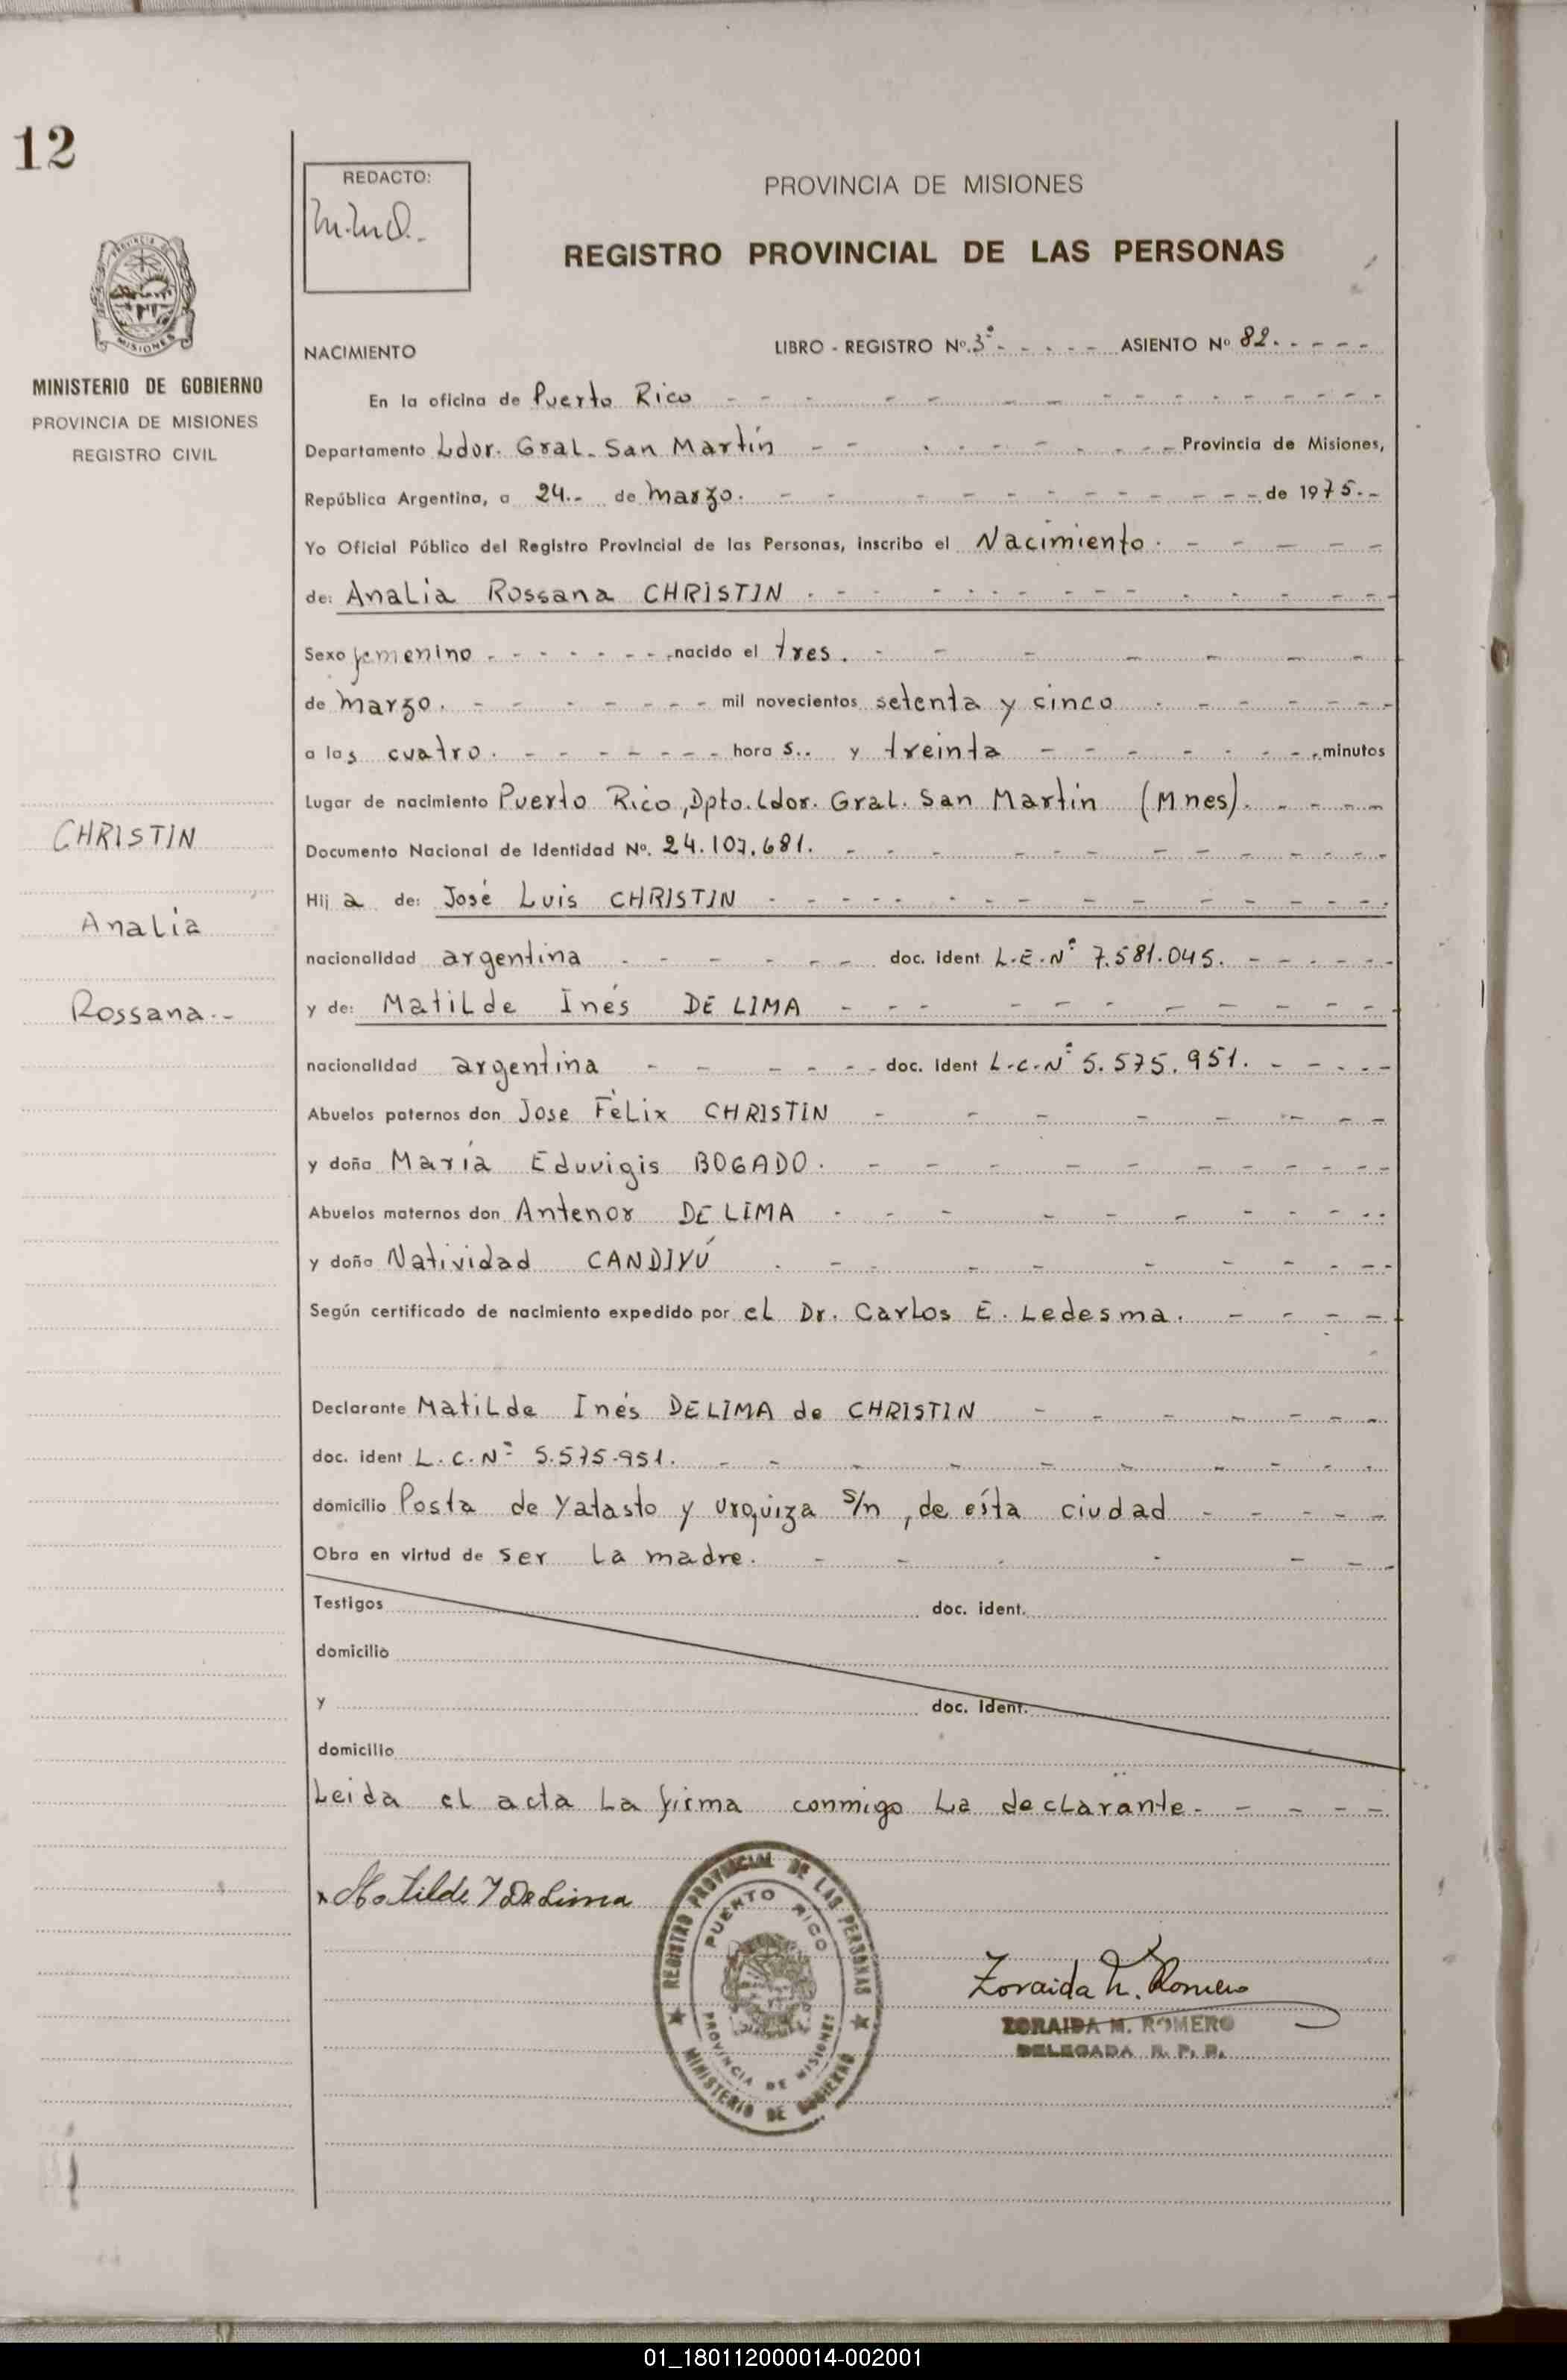 12
PROVINCIA DE MISIONES
MINISTERIO DE GOBIERNO
PROVINCIA DE MISIONES
REGISTRO CIVIL
CHRISTIN
Analia
Rossana.-
REDACTO:
PROVINCIA DE MISIONES
REGISTRO PROVINCIAL DE LAS PERSONAS
NACIMIENTO LIBRO - REGISTRO Nº 3º ASIENTO Nº 82.
En la oficina de Puerto Rico
Departamento Ldor. Gral. San Martín Provincia de Misiones,
República Argentina, a 24.- de marzo. de 1975.-
Yo Oficial Público del Registro Provincial de las Personas, inscribo el Nacimiento.
de: Analia Rossana CHRISTIN
Sexo femenino nacido el tres.
de marzo. mil novecientos setenta y cinco
a las cuatro. hora s.. y treinta minutos
Lugar de nacimiento Puerto Rico, Dpto. Ldor. Gral. San Martín (Mnes).
Documento Nacional de Identidad Nº. 24.107.681.
Hij a de: José Luis CHRISTIN
nacionalidad argentina doc. ident L.E.Nº 7.581.045.
y de: Matilde Inés DE LIMA
nacionalidad argentina doc. ident L.C.Nº 5.575.951.
Abuelos paternos don Jose Félix CHRISTIN
y doña María Eduvigis BOGADO.
Abuelos maternos don Antenor DE LIMA
y doña Natividad CANDIYÚ
Según certificado de nacimiento expedido por el Dr. Carlos E. Ledesma.
Declarante Matilde Inés DELIMA de CHRISTIN
doc. ident L.C.Nº 5.575.951.
domicilio Posta de Yatasto y Urquiza s/n, de ésta ciudad
Obra en virtud de ser la madre.
Testigos doc. ident.
domicilio
y doc. ident.
domicilio
Leida el acta la firma conmigo la declarante.
x Matilde I DeLima
REGISTRO PROVINCIAL DE LAS PERSONAS
PUERTO RICO
PROVINCIA DE MISIONES
MINISTERIO DE GOBIERNO
Zoraida M. Romero
ZORAIDA M. ROMERO
DELEGADA R. P. P.
01_180112000014-002001